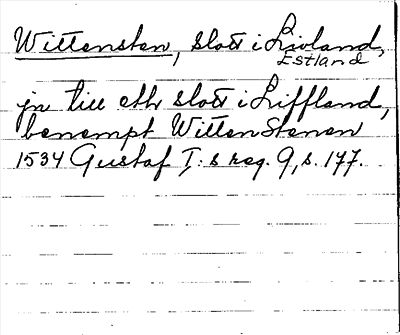 Wittensten, slott i Livland,
Estland
in till eth slott i Liffland,
benempt Witten Stenen
1534 Gustaf I:s reg. 9, s. 177.